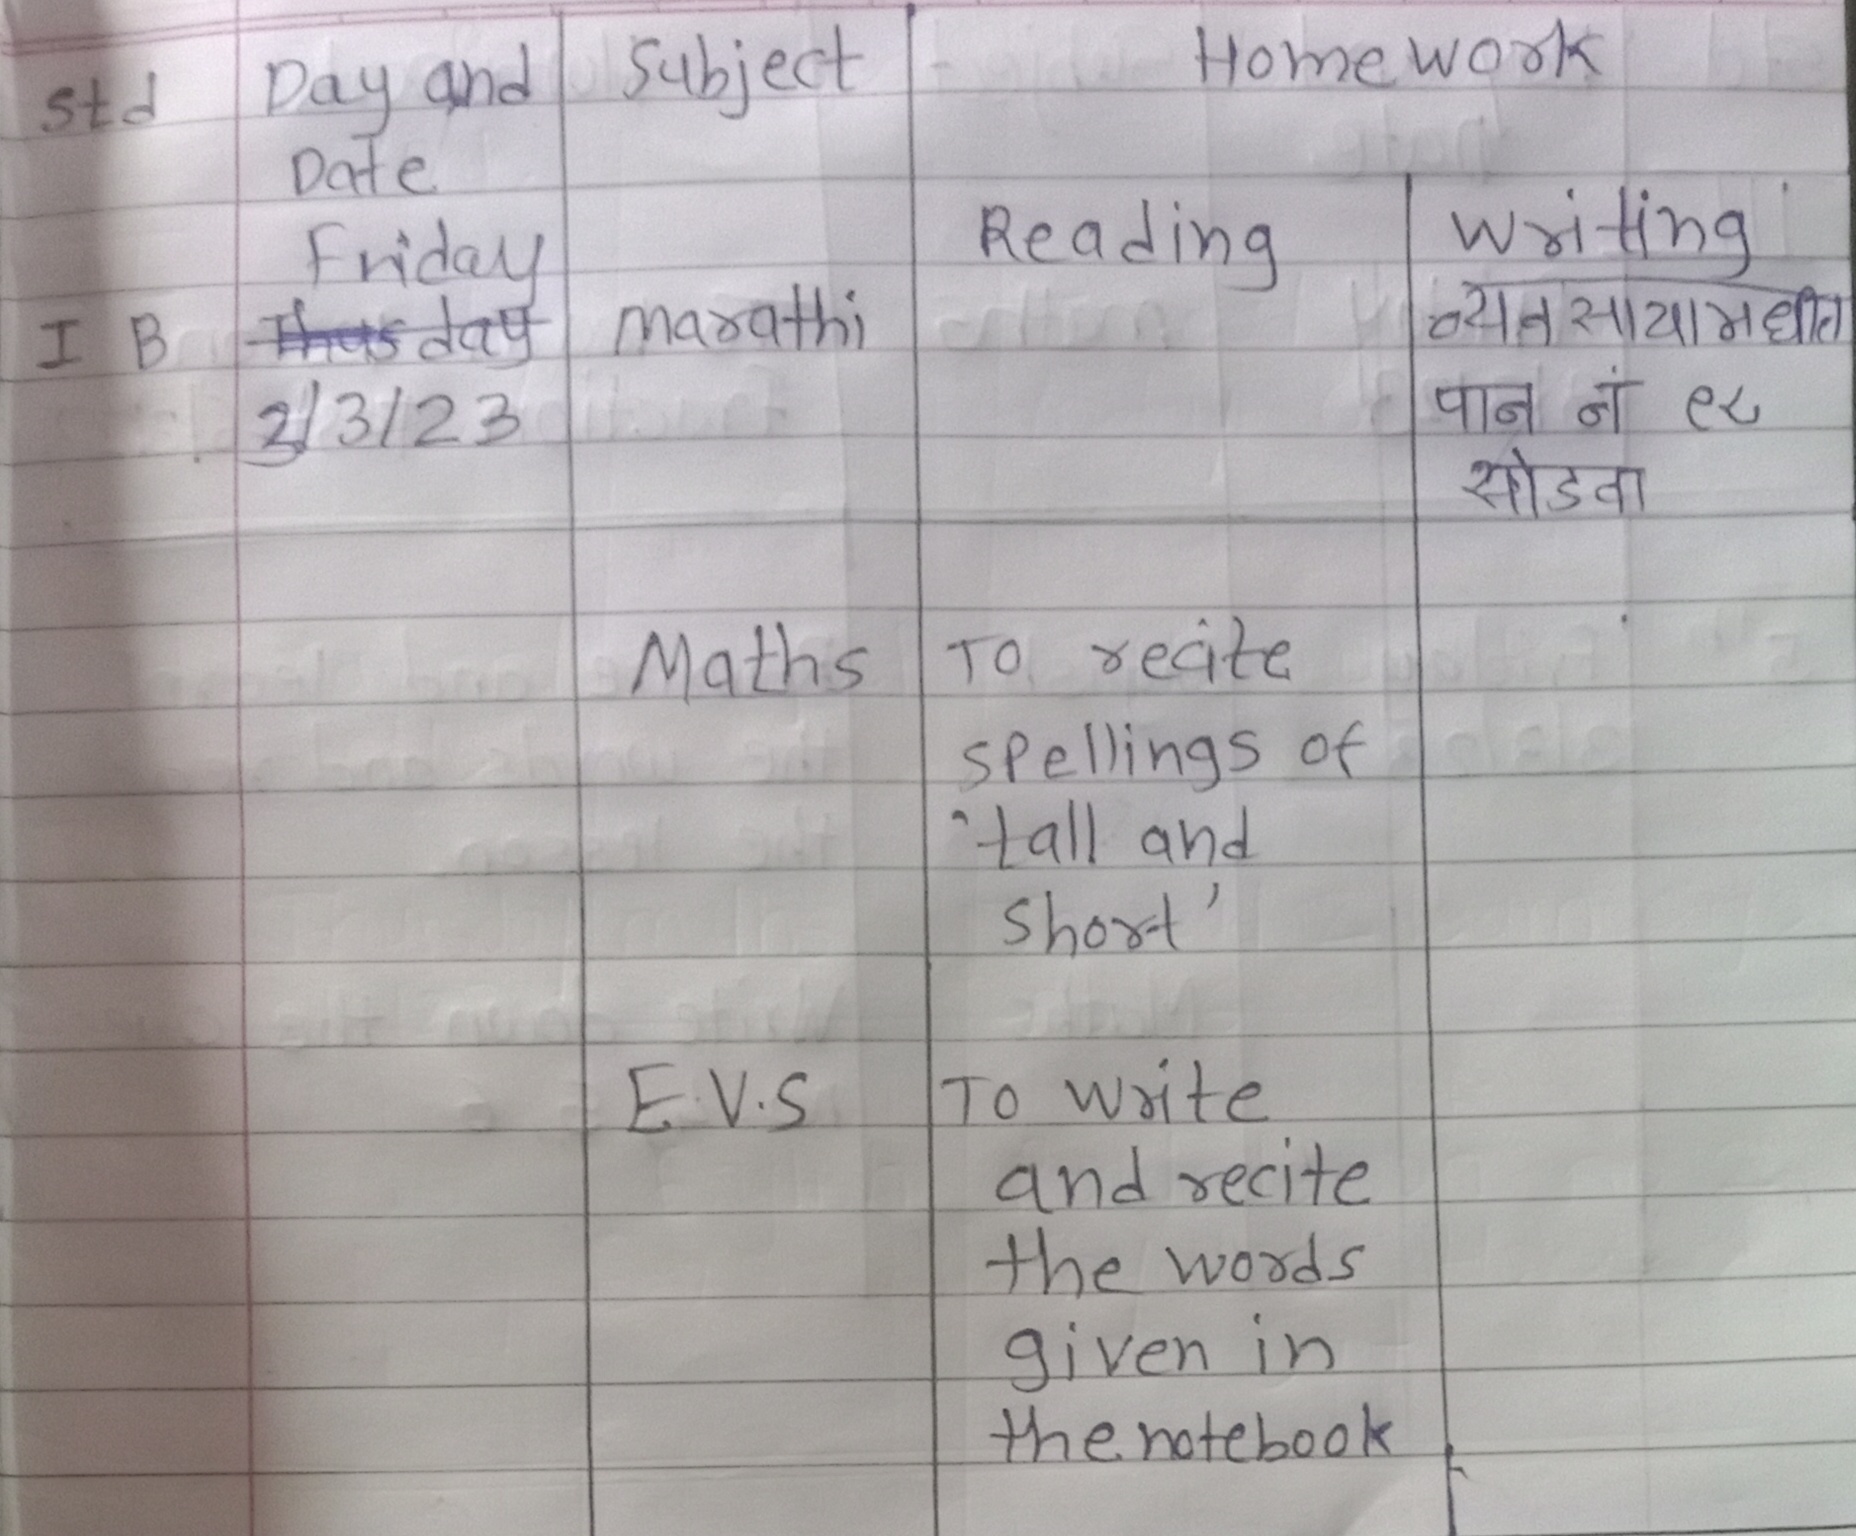 Std Day and Subject Homework
Date
Reading Writing
Friday
I B Thusday marathi व्यवसायामधील
2/3/23 पान नं १८
सोडवा
Maths To recite
spellings of
'tall and
short'
E.V.S To write
and recite
the words
given in
the notebook